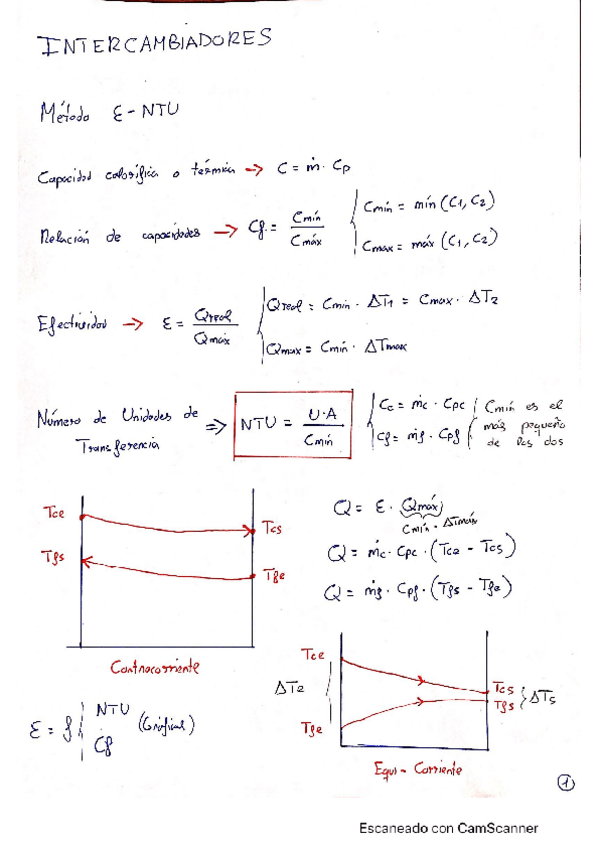 INTERCAMBIADORES
Método ε-NTU
Capacidad calorífica o térmica → C = ṁ · Cp
Relación de capacidades → Cf = Cmín / Cmáx { Cmín = mín (C1, C2)
Cmax = máx (C1, C2)
Efectividad → ε = Qreal / Qmáx { Qreal = Cmin · ΔT1 = Cmax · ΔT2
Qmax = Cmín · ΔTmax
Número de Unidades de Transferencia ⇒ NTU = U·A / Cmín { Cc = ṁc · Cpc
Cf = ṁf · Cpf
Cmín es el
más pequeño
de los dos
Tce
Tcs
Tfs
Tfe
Contracorriente
Q = ε · Qmáx
Cmín · ΔTmáx
Q = ṁc · Cpc · (Tce - Tcs)
Q = ṁf · Cpf · (Tfs - Tfe)
ε = f { NTU
Cf
(Gráficas)
Tce
ΔTe
Tfe
Tcs
Tfs
ΔTs
Equi-Corriente
1
Escaneado con CamScanner